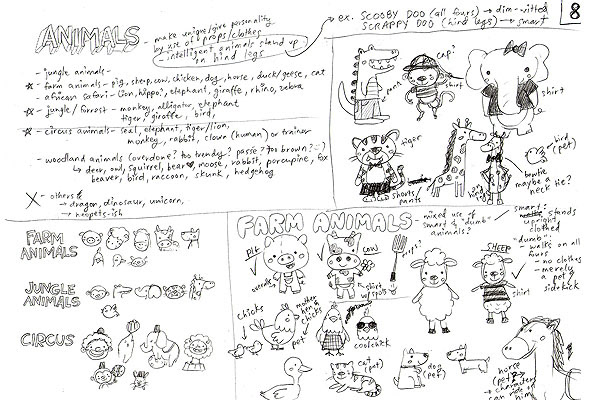 ANIMALS
- make unique/give personality
by use of props/clothes
- intelligent animals stand up
on hind legs
→ ex. SCOOBY DOO (all fours) → dim-witted
SCRAPPY DOO (hind legs) → smart
8
- jungle animals-
- farm animals - pig, sheep, cow, chicken, dog, horse, duck/geese, cat
- african safari - lion, hippo, elephant, giraffe, rhino, zebra
- jungle/forrest - monkey, alligator, elephant
tiger, giraffe, bird,
- circus animals - seal, elephant, tiger/lion,
monkey, rabbit, clown (human) or trainer
- woodland animals (overdone? too trendy? passé? too brown? :-)
↳ deer, owl, squirrel, bear, moose, rabbit, porcupine, fox
beaver, bird, raccoon, skunk, hedgehog
X - others
→ dragon, dinosaur, unicorn,
→ neopets-ish
cap?
pants
shirt
shirt
tiger
shorts/
pants
bird
(pet)
bowtie
maybe a
neck tie?
FARM
ANIMALS
JUNGLE
ANIMALS
CIRCUS
FARM ANIMALS
- mixed use of
smart & "dumb"
animals?
smart: stands
upright,
clothed
"dumb":
- walks on all
fours
- no clothes
- merely
a pet/
sidekick
pig
overalls
cow
shirt
w/ spots
props?
SHEEP
shirt
chicks
chicks
mother
hen
pet
cool chick
cat
(pet)
dog
(pet)
horse
(pet)
→ characters
can ride on
him